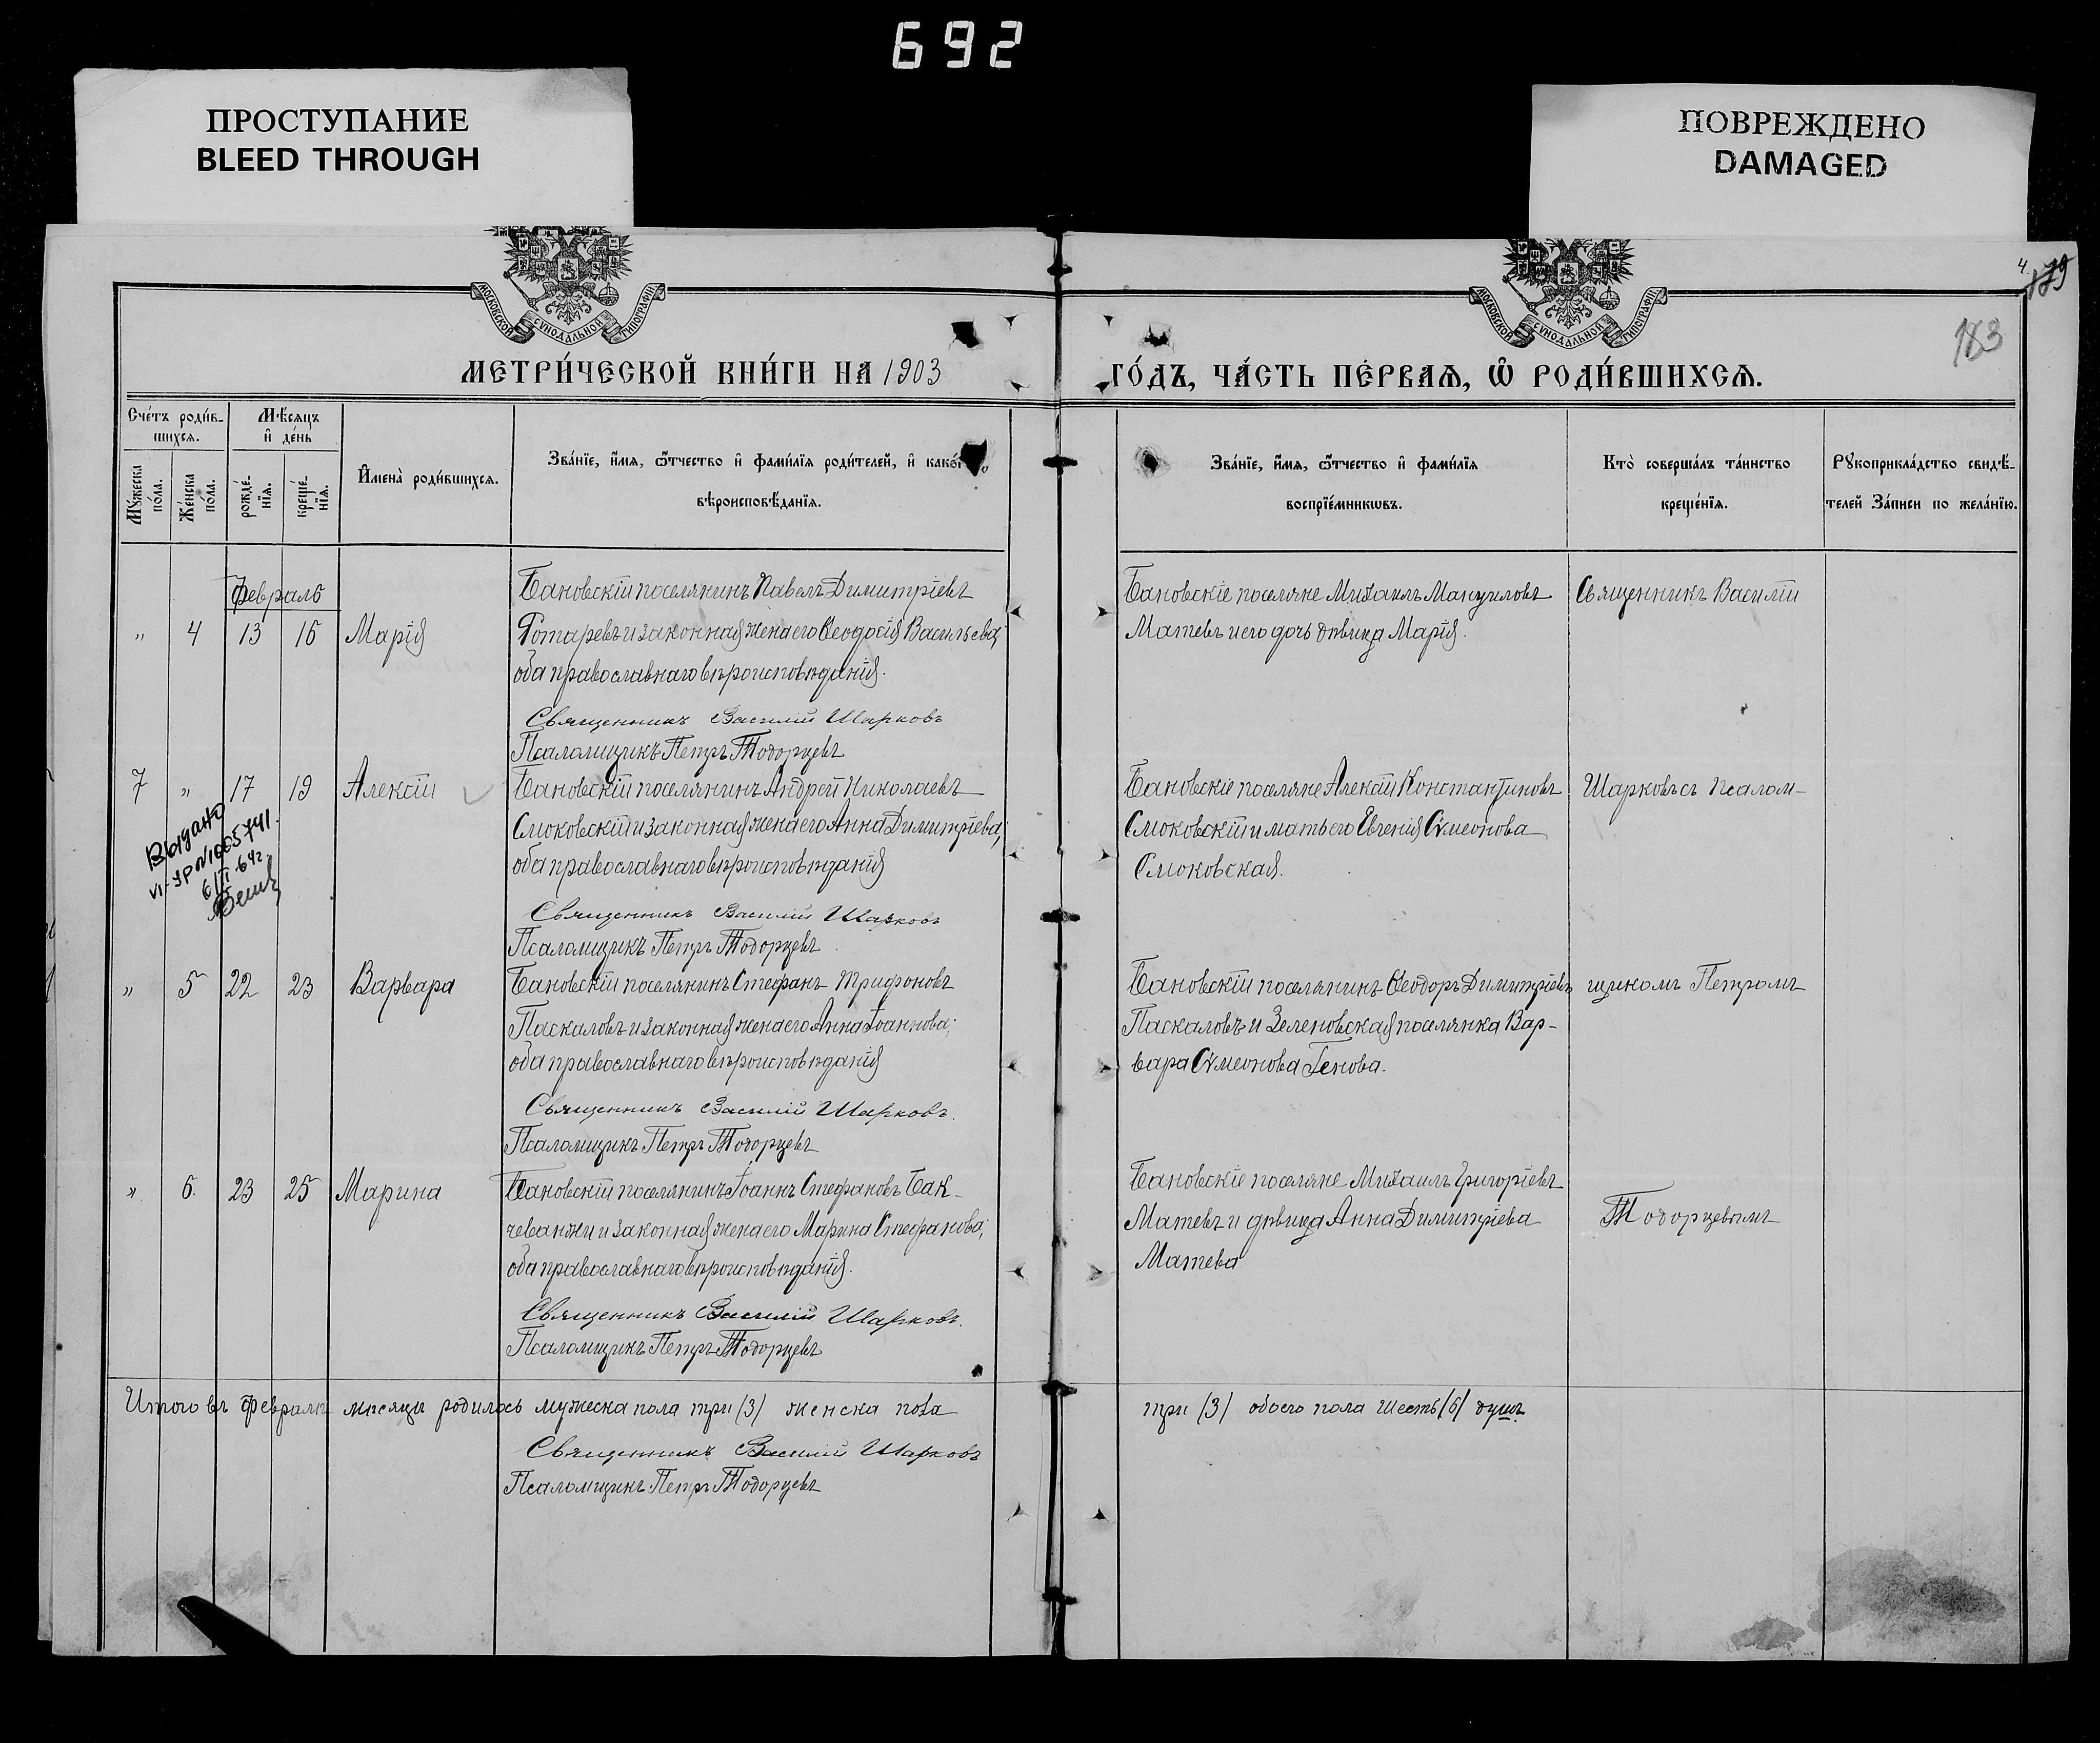 692
ПРОСТУПАНИЕ
BLEED THROUGH
ПОВРЕЖДЕНО
DAMAGED
МОСКОВСКОЙ СѴНОДАЛЬНОЙ ТИПОГРАФІИ
МОСКОВСКОЙ СѴНОДАЛЬНОЙ ТИПОГРАФІИ
4.
179
183
МЕТРИ́ЧЕСКОЙ КНИ́ГИ НА 1903
ГО́ДЪ, ЧА́СТЬ ПЕ́РВАѦ, Ѡ҆ РОДИ́ВШИХСѦ.
Сче́тъ роди́в-
шихсѧ.
Мꙋ́жеска
по́ла.
Же́нска
по́ла.
Мѣ́сѧцъ
и҆ де́нь
рожде́-
нїѧ.
креще́-
нїѧ.
И҆мена̀ роди́вшихсѧ.
Зва́нїе, и҆́мѧ, ѻ҆́тчество и҆ фами́лїѧ роди́телей, и҆ како́
вѣроисповѣ́данїѧ.
Зва́нїе, и҆́мѧ, ѻ҆́тчество и҆ фами́лїѧ
воспрїе́мникѡвъ.
Кто̀ соверша́лъ та́инство
креще́нїѧ.
Рꙋкоприкла́дство свидѣ́-
телей За́писи по жела́нїю.
Февраль
" 4 13 16 Марія
Бановскій поселянинъ Павелъ Димитріевъ
Ротаревъ и законная жена его Ѳеодосія Васильева;
оба православнаго вѣроисповѣданія.
Священникъ Василій Шарковъ
Псаломщикъ Петръ Тодорцевъ
Бановскіе поселяне Михаилъ Мануиловъ
Матевъ и его дочь дѣвица Марія.
Священникъ Василій
7 " 17 19 Алексій
Бановскій поселянинъ Андрей Николаевъ
Смоковскій и законная жена его Анна Димитріева;
оба православнаго вѣроисповѣданія
Священникъ Василій Шарковъ
Псаломщикъ Петръ Тодорцевъ
Бановскіе поселяне Алексій Константиновъ
Смоковскій и мать его Евгенія Сѵмеонова
Смоковская.
Шарковъ съ псалом-
Выдано
VI-УР №1005741.
6/II-64г.
" 5 22 23 Варвара
Бановскій поселянинъ Стефанъ Трифоновъ
Паскаловъ и законная жена его Анна Іоаннова;
оба православнаго вѣроисповѣданія
Священникъ Василій Шарковъ.
Псаломщикъ Петръ Тодорцевъ
Бановскій поселянинъ Ѳеодоръ Димитріевъ
Паскаловъ и Зеленовская поселянка Вар-
вара Сѵмеонова Генова.
щикомъ Петромъ
" 6. 23 25 Марина
Бановскій поселянинъ Іоаннъ Стефановъ Бак-
чеванжи и законная жена его Марина Стефанова;
оба православнаго вѣроисповѣданія.
Священникъ Василій Шарковъ.
Псаломщикъ Петръ Тодорцевъ
Бановскіе поселяне Михаилъ Григоріевъ
Матевъ и дѣвица Анна Димитріева
Матева
Тодорцевымъ
Итого въ Февралѣ мѣсяцѣ родилось мужеска пола три /3/ женска пола
три /3/ обоего пола шесть /6/ душъ.
Священникъ Василій Шарковъ
Псаломщикъ Петръ Тодорцевъ